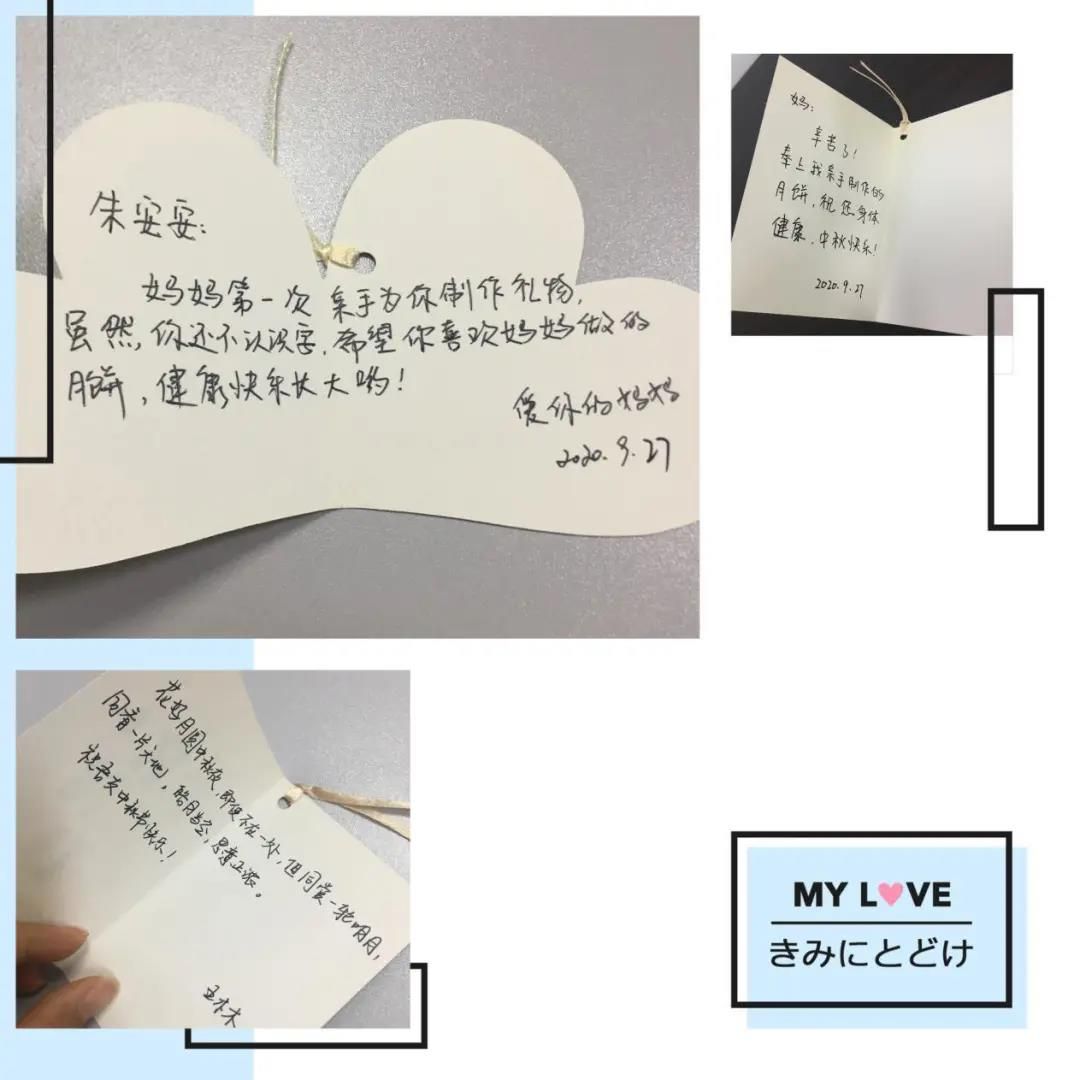 朱安安：
妈妈第一次亲手为你制作礼物，
虽然，你还不认识字，希望你喜欢妈妈做的
月饼，健康快乐长大哟！
爱你的妈妈
2020.9.27
妈：
辛苦了！
奉上我亲手制作的
月饼，祝您身体
健康，中秋快乐！
2020.9.27
花好月圆中秋夜，即便不在一处，但同赏一轮明月，
同看一片大地，皓月当空，思意正浓。
祝吾友中秋节快乐！
王木木
MY L♥VE
きみにとどけ